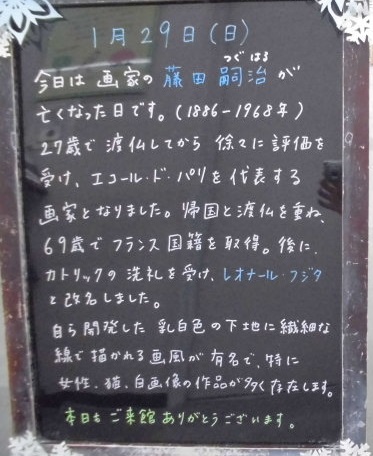 1月29日(日)
つぐ はる
今日は 画家の 藤田 嗣治 が
亡くなった日です。(1886-1968年)
27歳で 渡仏してから 徐々に 評価を
受け、エコール・ド・パリを 代表する
画家となりました。帰国と渡仏を重ね、
69歳で フランス国籍を取得。後に、
カトリックの 洗礼を受け、レオナール・フジタ
と改名しました。
自ら開発した 乳白色の下地に繊細な
線で描かれる画風が有名で、特に
女性、猫、自画像の作品が多く存在します。
本日も ご来館 ありがとうございます。